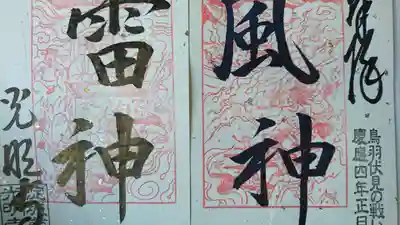 奉拝
風神
鳥羽伏見の戦い
慶應四年正日
雷神
光明